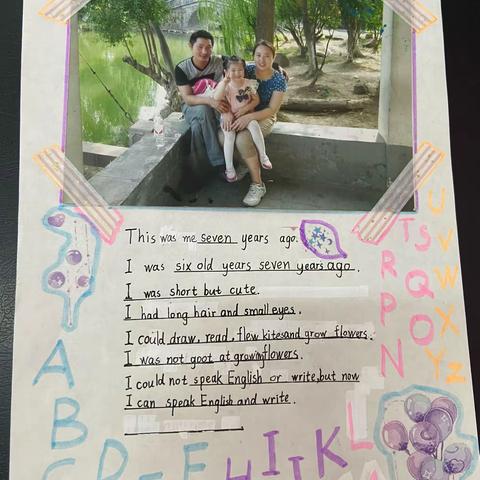 This was me seven years ago.
I was six old years seven years ago.
I was short but cute.
I had long hair and small eyes.
I could draw, read, flew kites and grow flowers.
I was not goot at growing flowers.
I could not speak English or write, but now
I can speak English and write.
A
B
C D E F
H I J K
L
N
P O
R Q
T S
U
V
W
X
Y Z